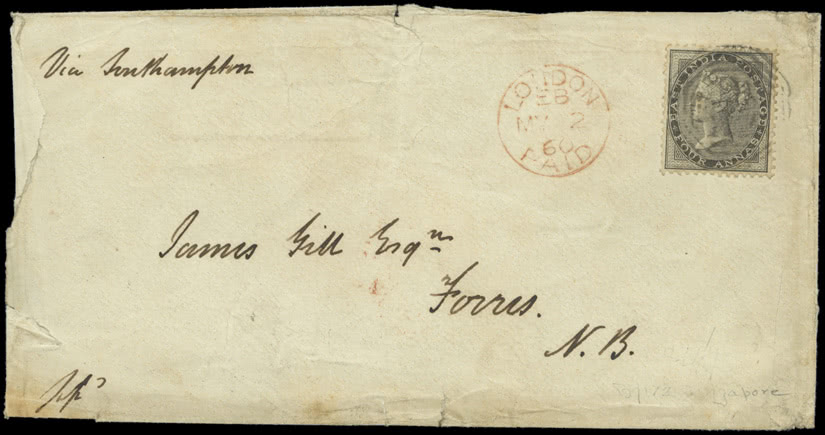 Via Southampton
LONDON
EB
MY 2
60
PAID
EAST INDIA POSTAGE
FOUR ANNAS
James Gill Esqre
Forres.
N.B.